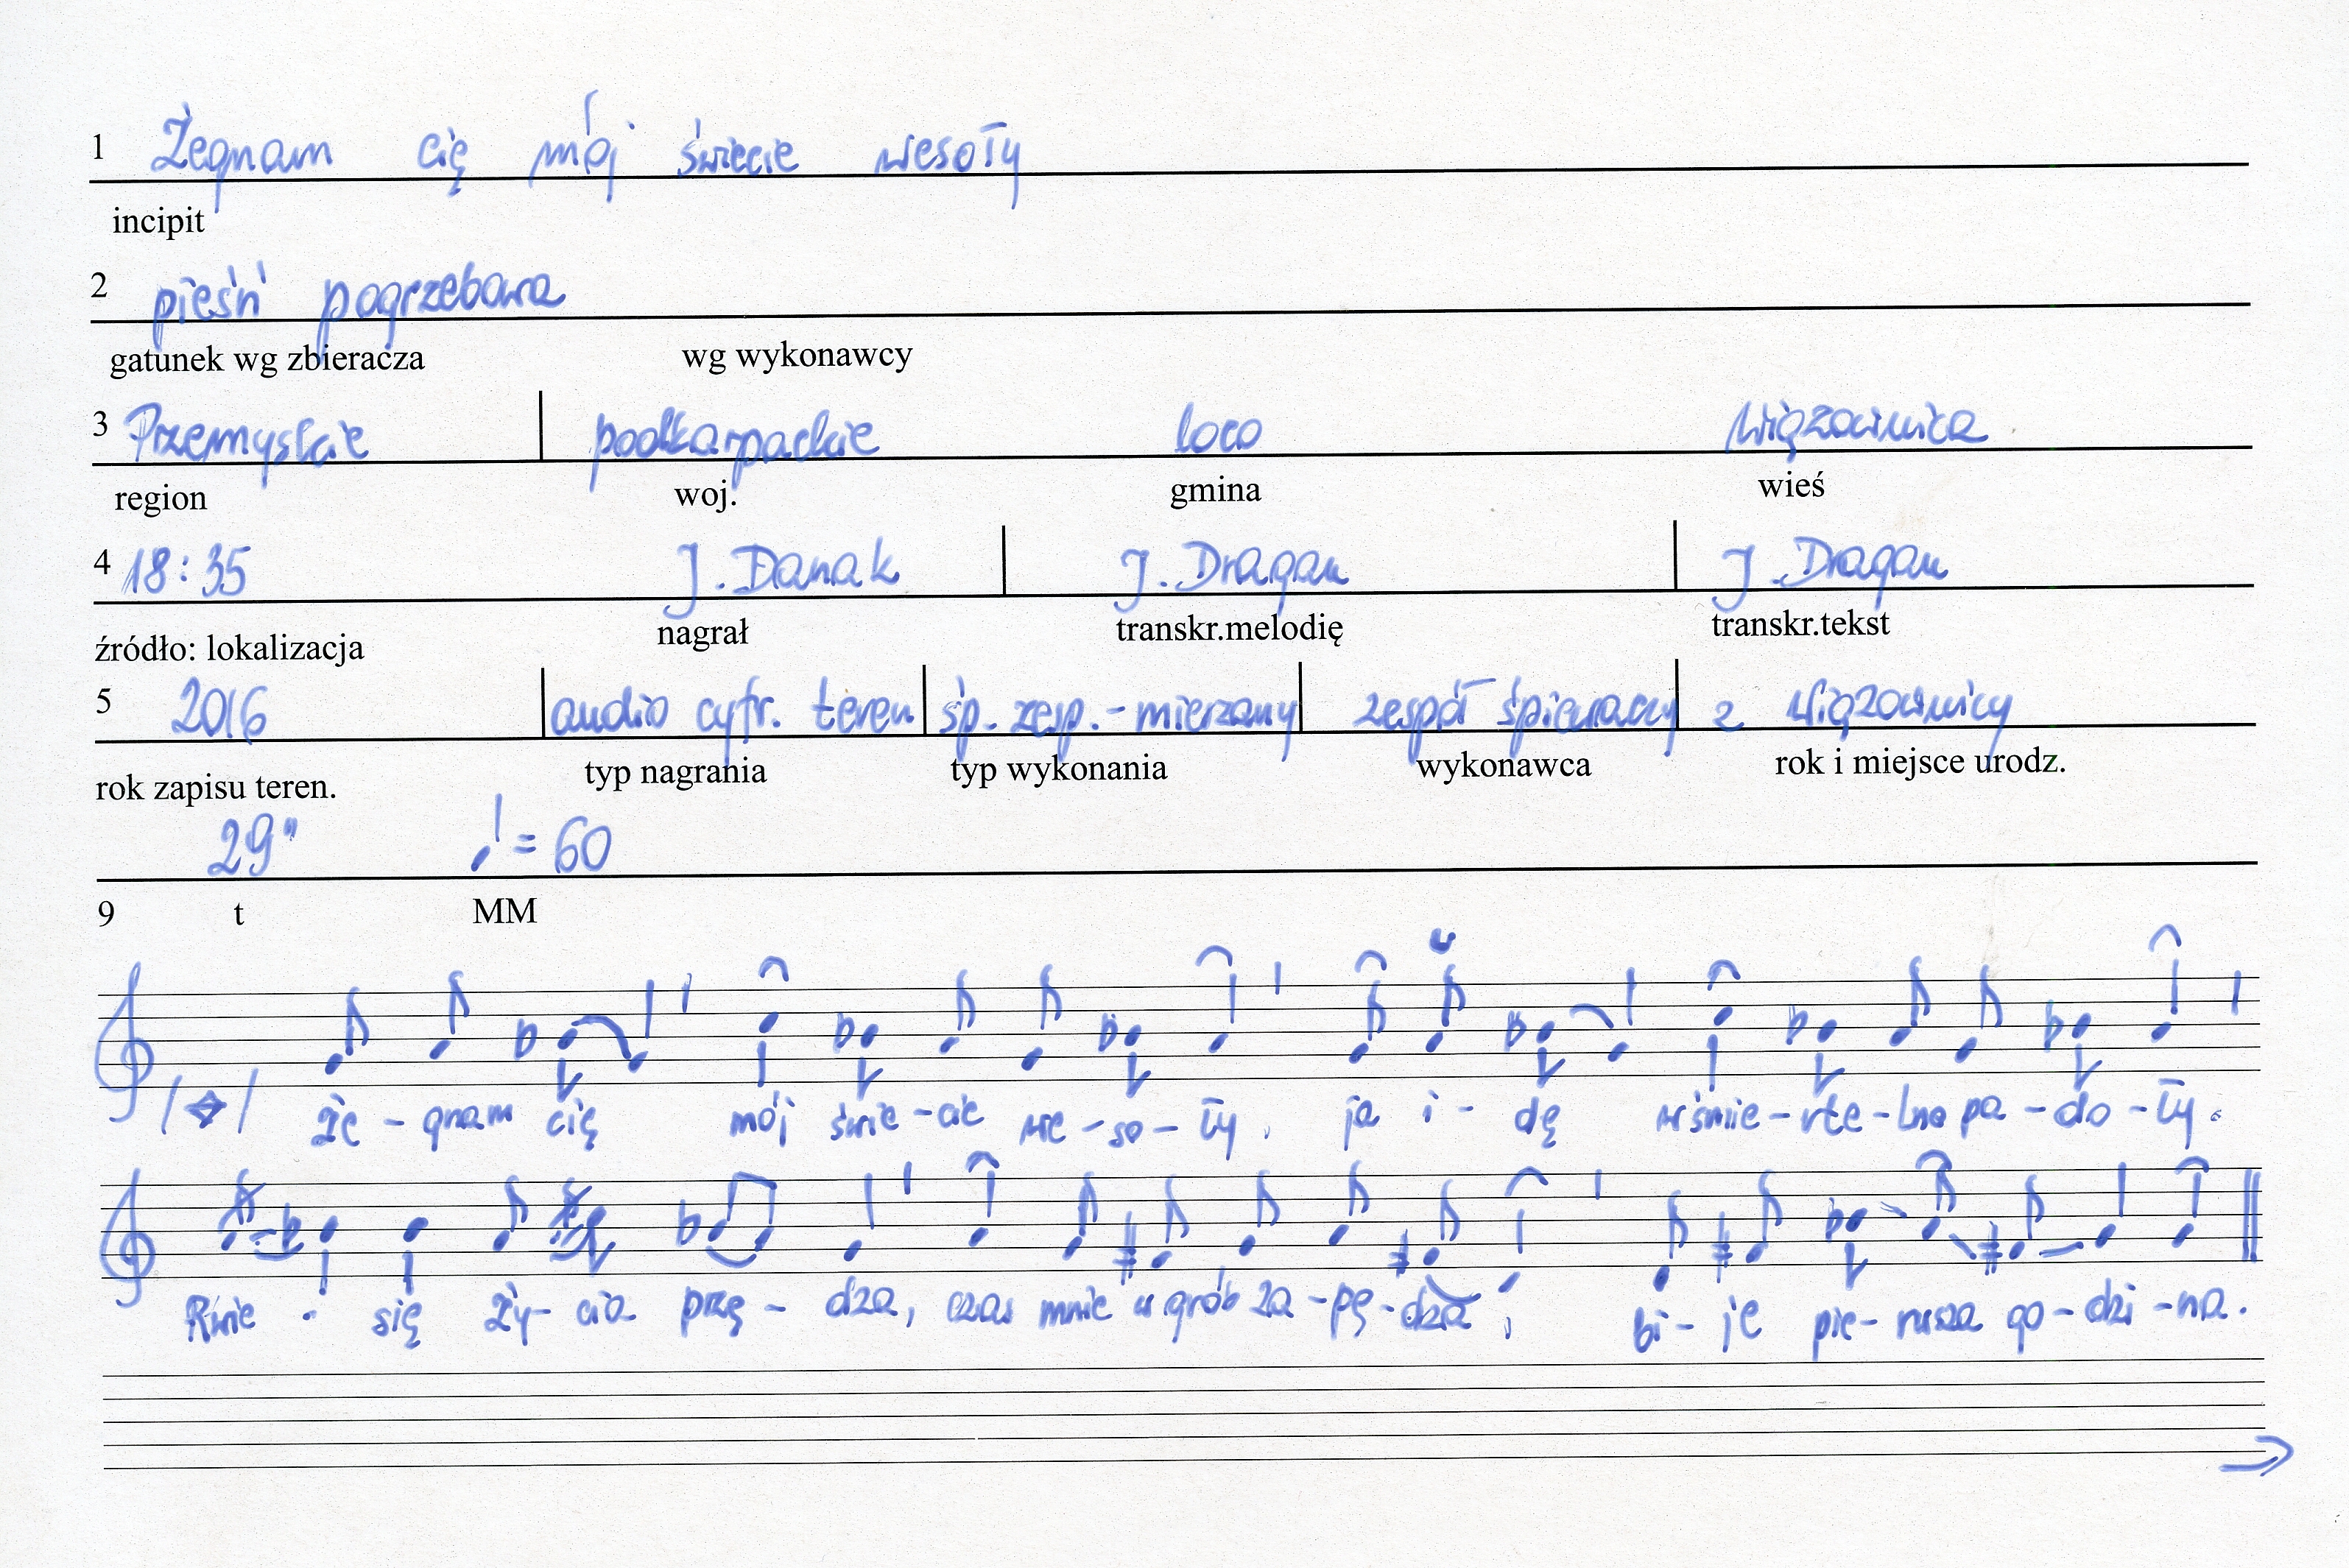 1 Żegnam cię mój świecie wesoły
incipit
2 pieśń pogrzebowa
gatunek wg zbieracza wg wykonawcy
3 Przemyskie podkarpackie loco Wiązownica
region woj. gmina wieś
4 18:35 J. Danak J. Dragan J. Dragan
źródło: lokalizacja nagrał transkr.melodię transkr.tekst
5 2016 audio cyfr. teren śp. zesp.-mierzany zespół śpiewaczy z Wiązownicy
rok zapisu teren. typ nagrania typ wykonania wykonawca rok i miejsce urodz.
29" ♩ = 60
9 t MM
Że - gnam cię mój świe - cie we - so - ły, ja i - dę w śmie - rte - lne pa - do - ły.
Rwie się ży - cia przę - dza, czas mnie w grób za - pę - dza, bi - je pie - rwsza go - dzi - na.